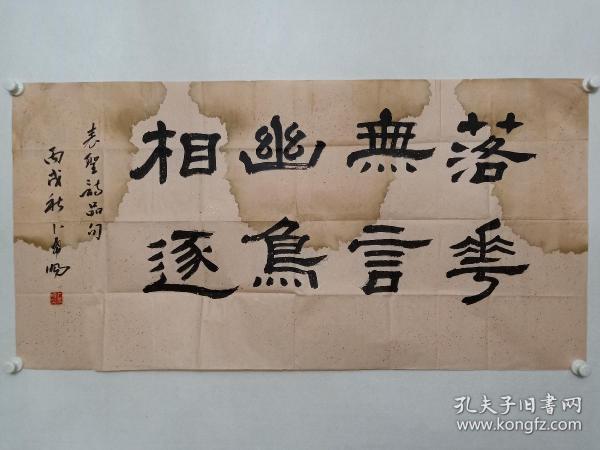 落華
無言
幽鳥
相逐
表聖詩品句
丙戌秋卜希暘
孔夫子旧書网
www.kongfz.com